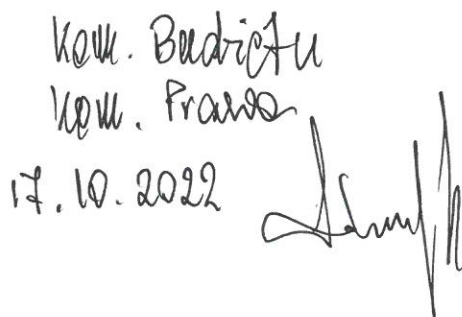 Kom. Budżetu
Kom. Prawa
17.10.2022